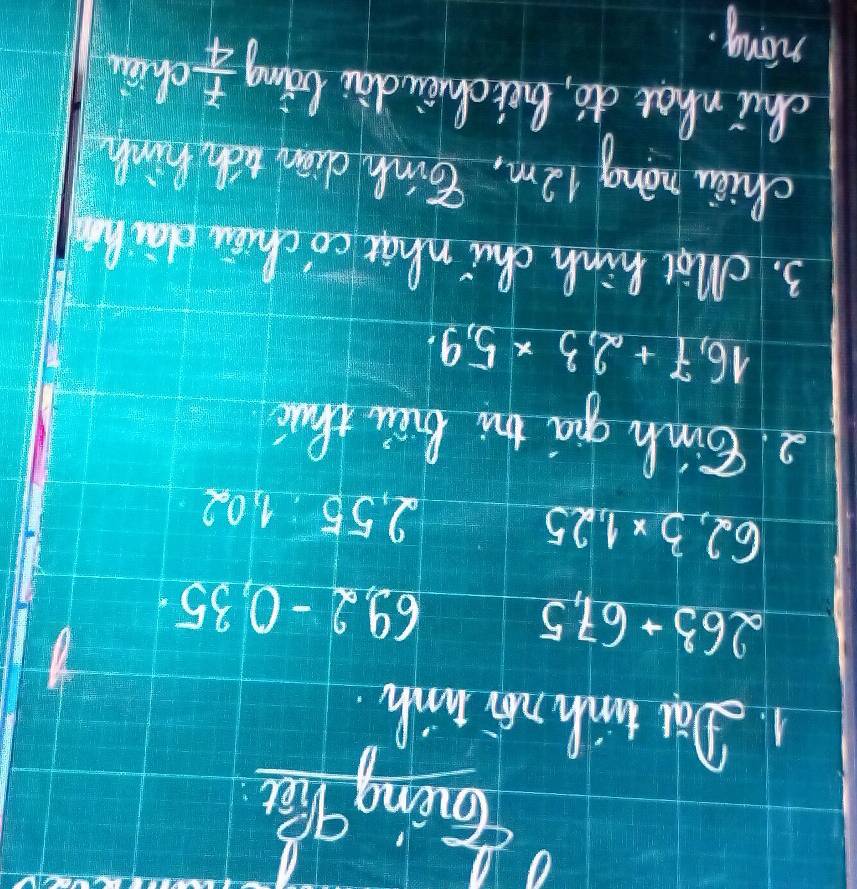 Tiếng Việt:
1. Đặt tính rồi tính.
263 + 67,5    69,2 - 0,35.
62,3 × 1,25    2,55 : 1,02
2. Tính giá trị biểu thức
16,7 + 2,3 × 5,9.
3. Một hình chữ nhật có chiều dài hơn
chiều rộng 12m. Tính diện tích hình
chữ nhật đó, biết chiều dài bằng 7/4 chiều
rộng.